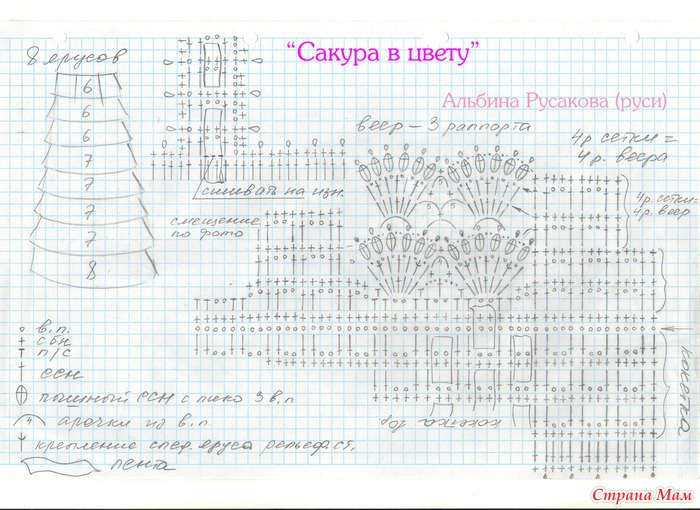 “Сакура в цвету”
Альбина Русакова (руси)
8 ярусов
6
6
6
7
7
7
7
8
веер – 3 раппорта
4 р. сетки =
4 р. веера
4 р. сетки =
4 р. веер
сшивать на изн.
смещение
по фото
5
5
кокетка
кокетка
в.п.
сбн
п/с
ссн
пышный ссн с пико 3 в.п
4 арочки из в.п.
крепление след. яруса рельеф. ст.
лента
Страна Мам